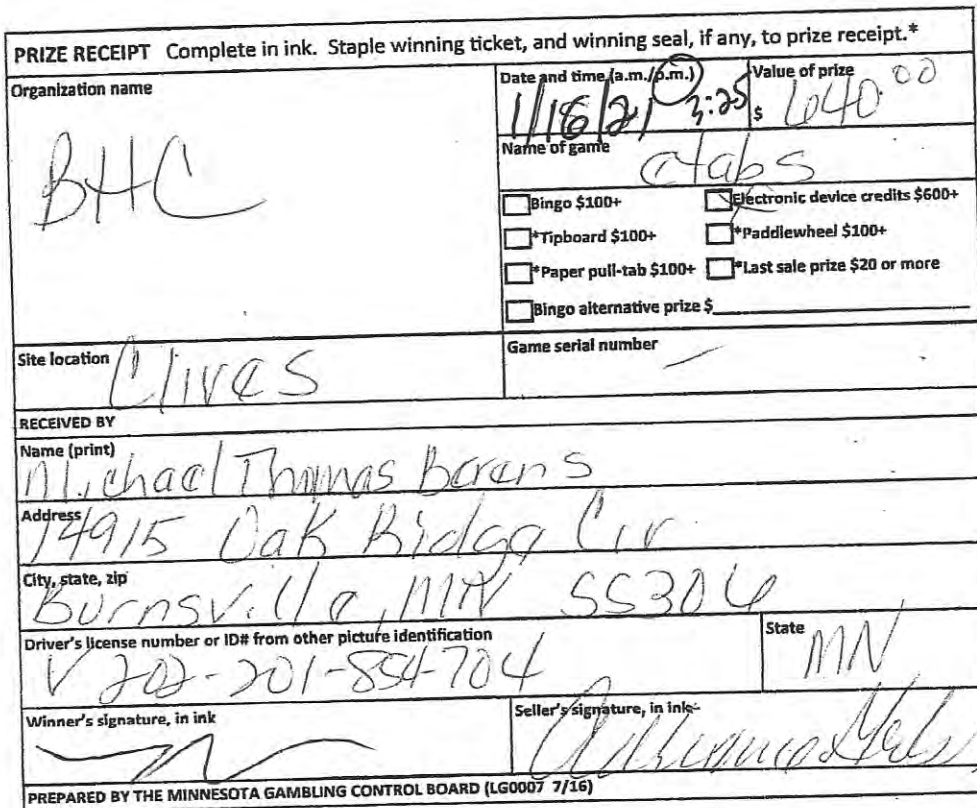 PRIZE RECEIPT Complete in ink. Staple winning ticket, and winning seal, if any, to prize receipt.*
Organization name
BHC
Date and time (a.m./p.m.)
1/16/21 3:25
Value of prize
$ 640.00
Name of game
etabs
Bingo $100+
Electronic device credits $600+
*Tipboard $100+
*Paddlewheel $100+
*Paper pull-tab $100+
*Last sale prize $20 or more
Bingo alternative prize $
Site location
Clives
Game serial number
—
RECEIVED BY
Name (print)
Michael Thomas Berens
Address
14915 Oak Ridge Cir
City, state, zip
Burnsville, MN 55306
Driver's license number or ID# from other picture identification
V 202-201-854-704
State
MN
Winner's signature, in ink
Seller's signature, in ink
PREPARED BY THE MINNESOTA GAMBLING CONTROL BOARD (LG0007 7/16)